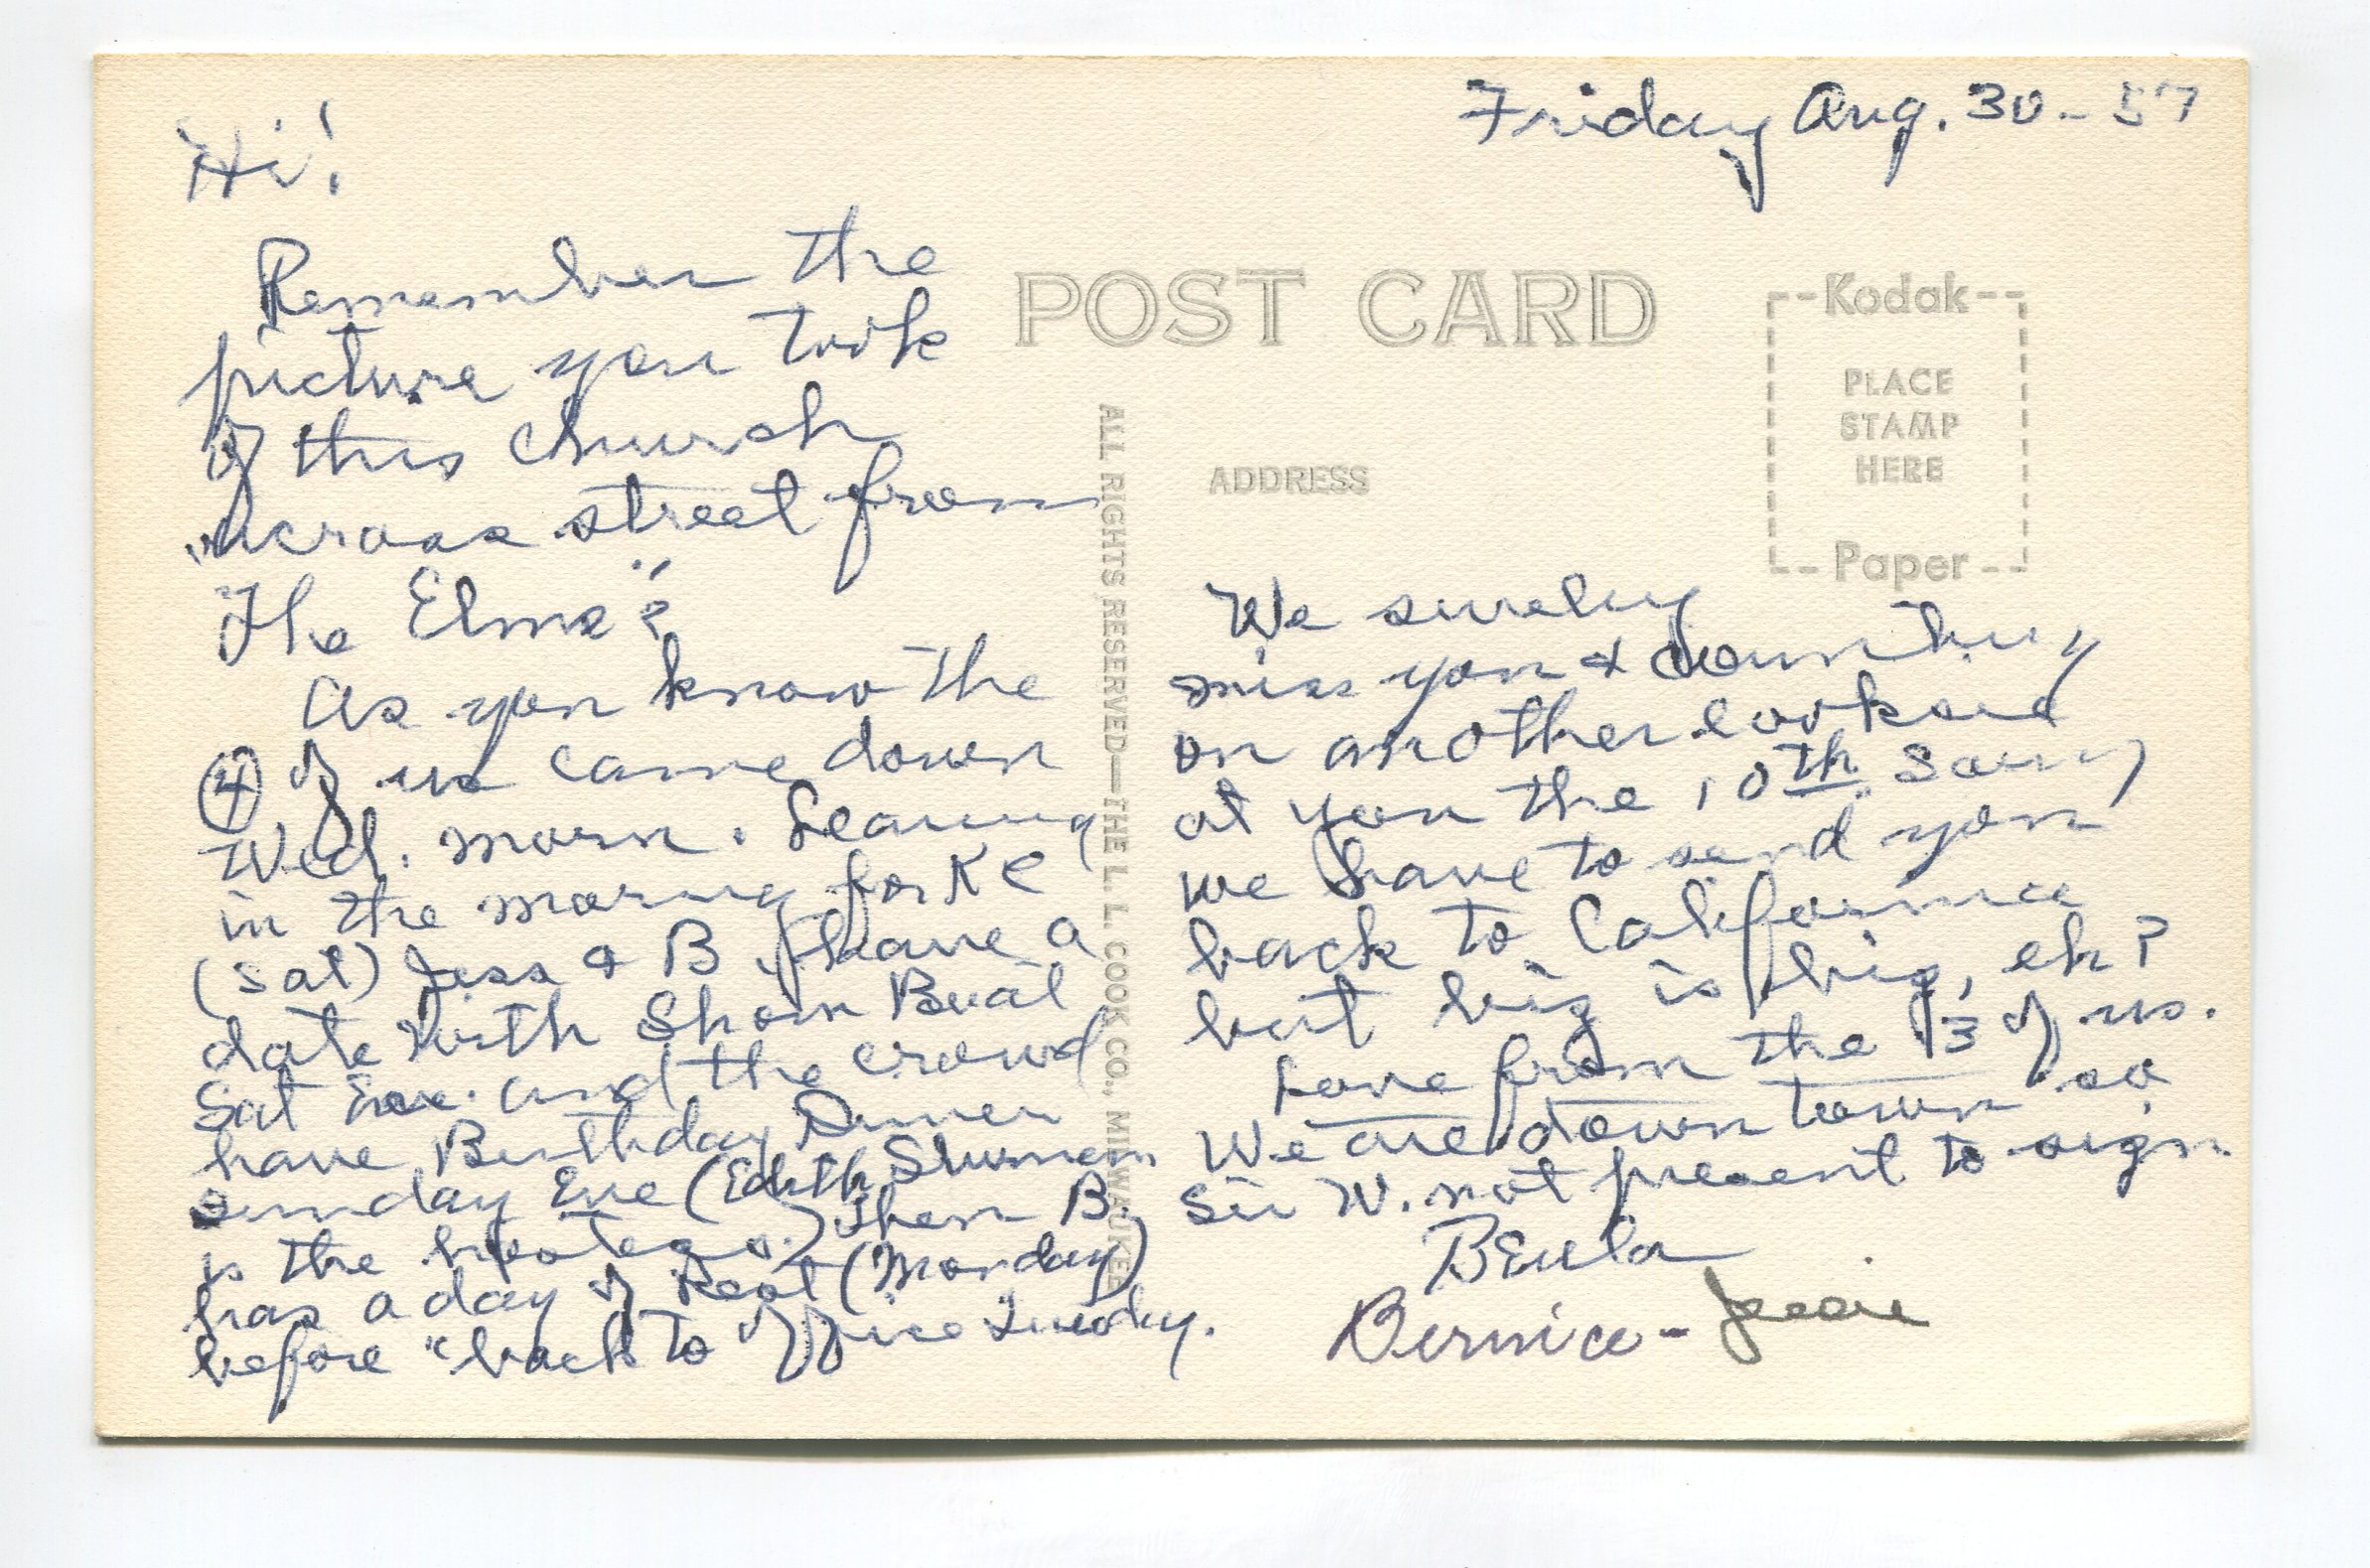 Friday Aug. 30 - 57
Hi!
Remember the
picture you took
of this Church
"across street from
The Elms"?
As you know the
④ of us came down
Wed. morn. Leaving
in the morning for K C
(Sat) Jess & B have a
date with Show Boat
Sat Eve. and the crowd
have Birthday Dinner
Sunday Eve (Edith
is the hostess.) Then B.
has a day of Rest (Monday)
before "back to office Tuesday.
POST CARD
ADDRESS
Kodak
PLACE
STAMP
HERE
Paper
ALL RIGHTS RESERVED—THE L. L. COOK CO., MILWAUKEE
We surely
miss you & counting
on another
at you the 10th Sorry
we have to send you
back to California
but big is big, eh?
Love from the 3 of us.
We are down town so
Sir W. not present to sign.
Beula
Bernice - Jessie